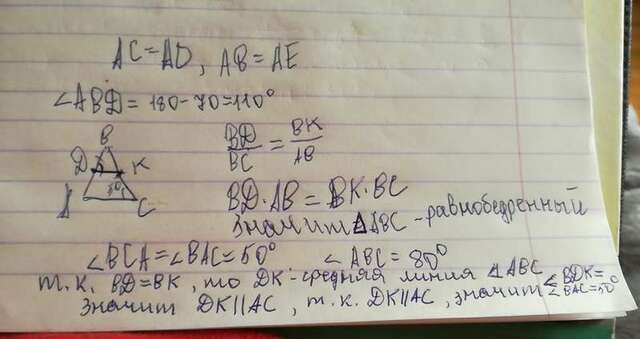 AC=AD, AB=AE
∠ABD=180-70=110°
B
D K
50°
A C
BD/BC = BK/AB
BD·AB=BK·BC
значит ΔABC-равнобедренный
∠BCA=∠BAC=50° ∠ABC=80°
т.к. BD=BK, то DK-средняя линия ΔABC
значит DK||AC, т.к. DK||AC, значит ∠BDK=
∠BAC=50°